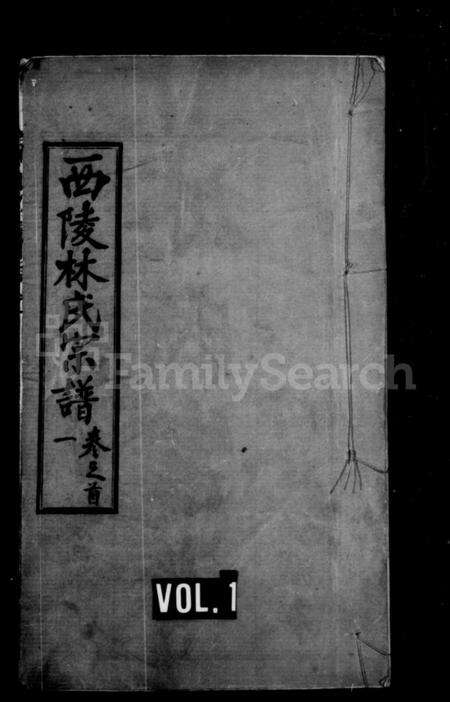 西陵林氏宗譜
卷之首
一
VOL. 1
FamilySearch